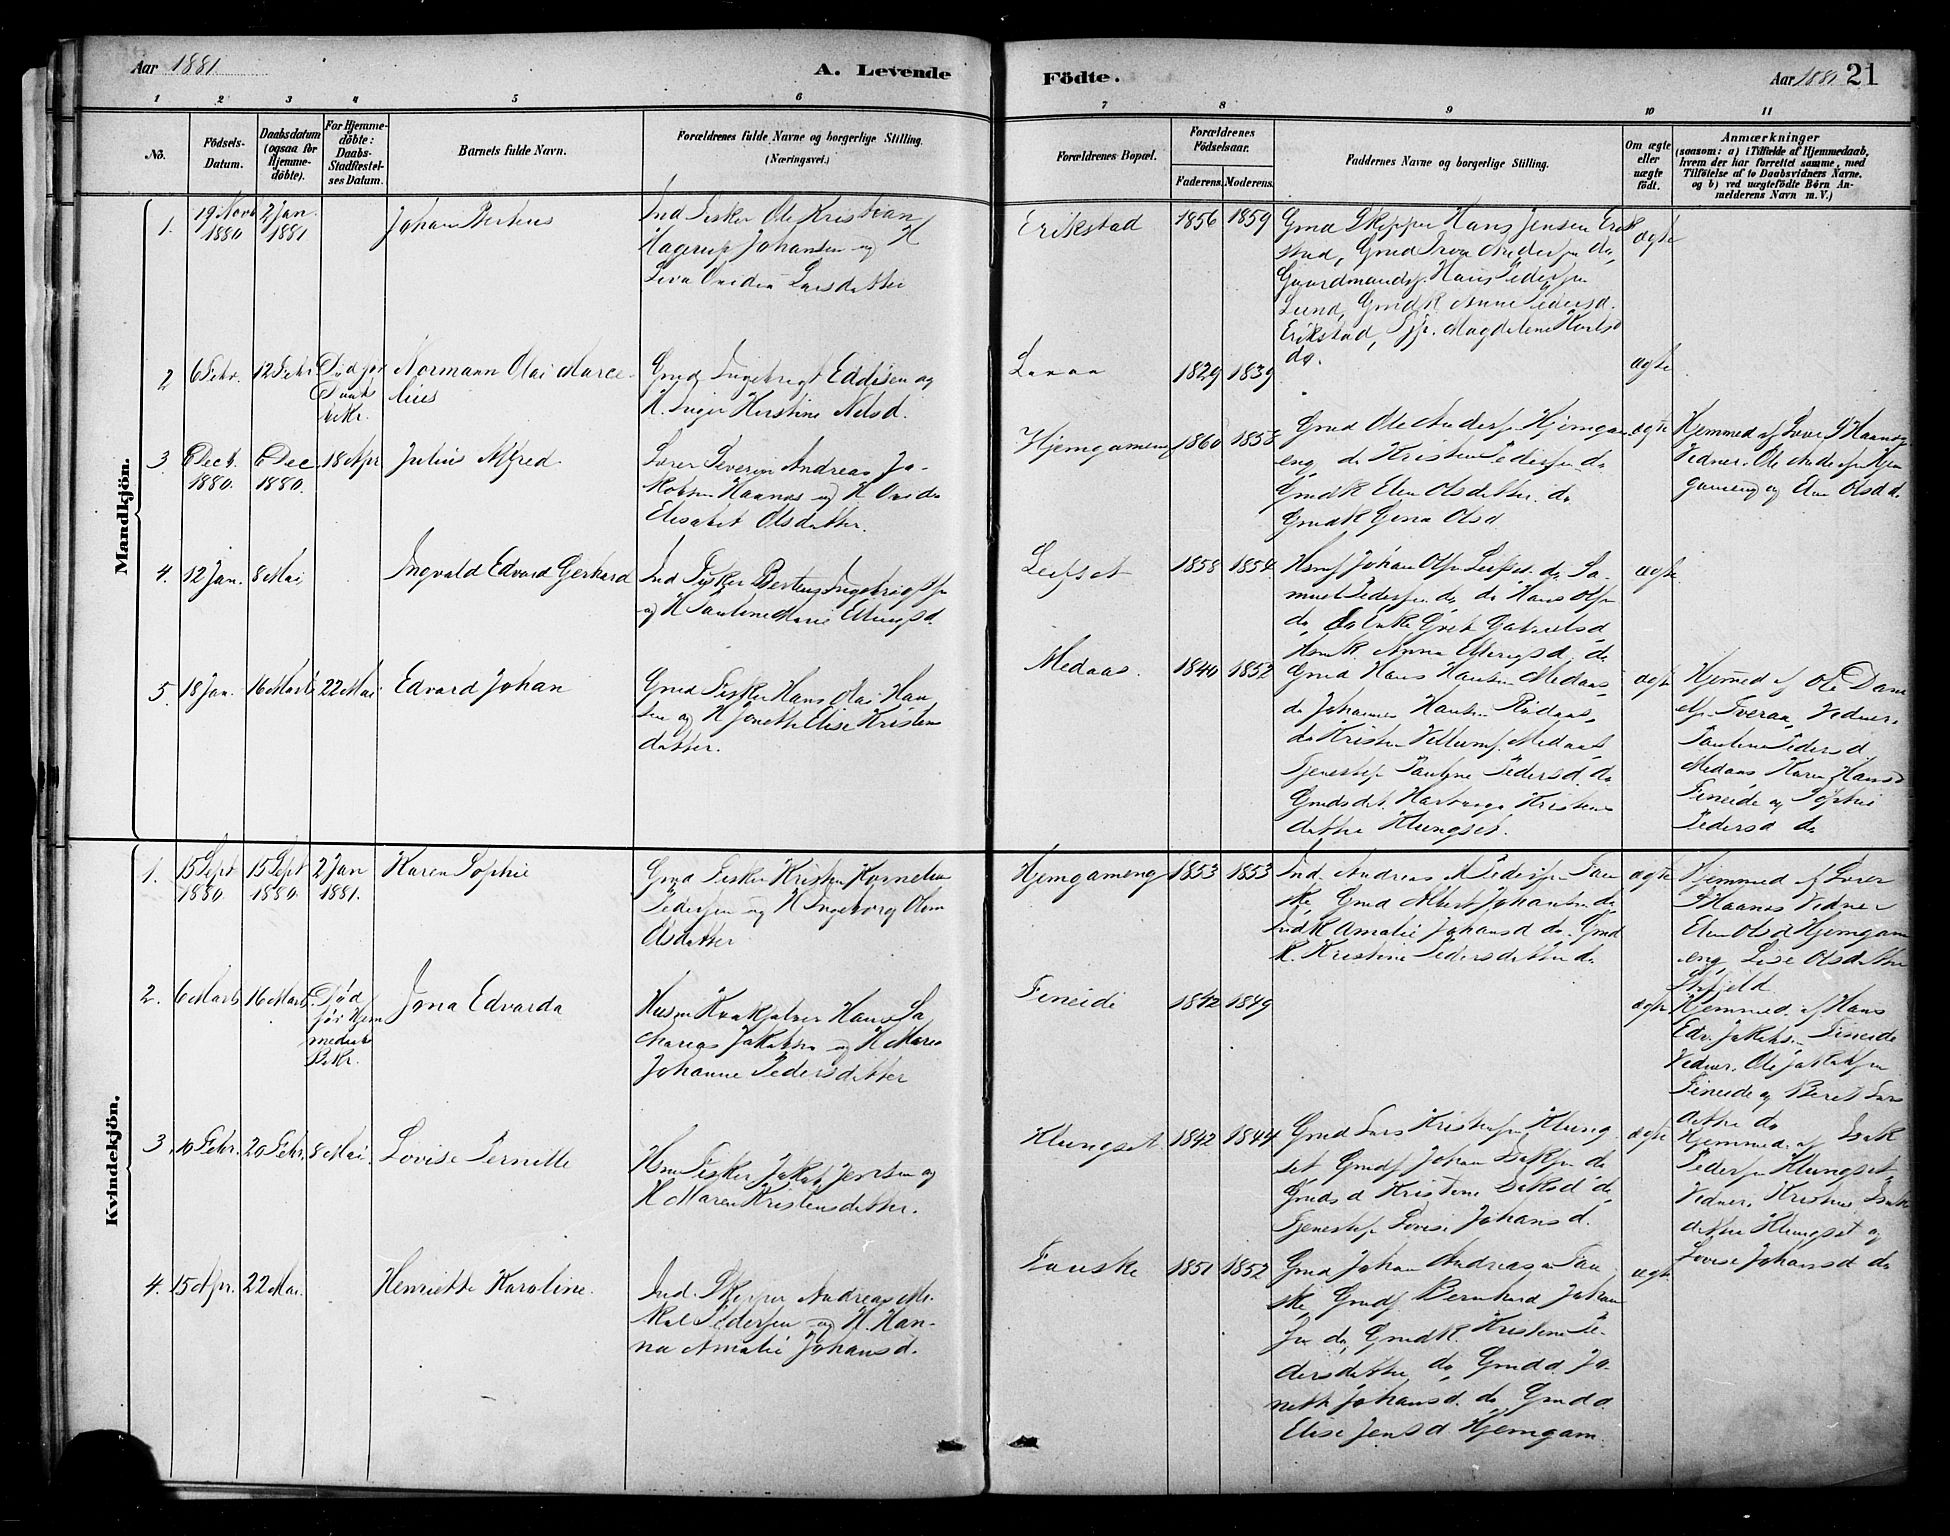 Aar 1881
A. Levende
Födte.
Aar 1881
21
1 2 3 4 5 6 7 8 9 10 11
No.
Födsels-
Datum.
Daabsdatum
(ogsaa for
Hjemme-
döbte).
For Hjemme-
döbte:
Daabs-
Stadfæstel-
ses Datum.
Barnets fulde Navn.
Forældrenes fulde Navne og borgerlige Stilling.
(Næringsvei.)
Forældrenes Bopæl.
Forældrenes
Födselsaar.
Faderens. Moderens.
Faddernes Navne og borgerlige Stilling.
Om ægte
eller
uægte
födt.
Anmærkninger
(saasom: a) i Tilfælde af Hjemmedaab,
hvem der har forrettet samme, med
Tilföielse af to Daabsvidners Navne.
og b) ved uægtefödte Börn An-
melderens Navn m.V.)
Mandkjön.
1.
19 Novb
1880
2 Jan.
1881
Johan
Ind Fisker Ole Kristian
Hagerup Johansen og H
Larsdatter
Erikstad
1856 1859
Gmd Skipper Hans Jensen Erik
stad, Gmd Andersen do,
Gaardmands. Hans Pedersen
Lund, Gmd K Anne Pedersd.
Erikstad, Magdelene
do.
ægte
2
6 Febr. 12 Febr
Normann Olai Marce-
lius
Gmd Ingebrigt Eddisen og
H. Inger Kirstine Nilsd.
1829 1839
ægte
3.
6 Decb.
1880.
6 Dec
1880.
18 Apr
Julius Alfred.
Lærer Severin Andreas Ja-
kobsen Haanes og H
Elisabet Olsdatter.
Hjemgameng
1860 1858
Gmd Ole Anders. Hjemgam
eng, do Kristen Pedersen do
Gmd K Elen Olsdatter do
Gmd K Gina Olsd
ægte
Hjemmed af Haanes
Vidner. Ole Anders Hjem
gameng og Elen Olsd do
4.
12 Jan. 8 Mai
Ingvald Edvard Gerhard
Ind Fisker Berteus Ingebrigtsen
og H Pauline Marie Ellingsd.
Leifset
1858 1854
Johan Olsen Leifset. do Sa-
muel Pedersen do, do Hans Olsen
do, Enke Gabrielsd
Anna Ellingsd. do
ægte
5.
18 Jan. 16 Marts 22 Mai
Edvard Johan
Gmd Fisker Hans Olai Han
sen og H Jonette Elise Kristens
datter.
Medaas.
1840 1852
Gmd Hans Hansen Medaas,
do Johannes Hansen Rødaas,
do Kristen Villums. Medaas
Tjenestep. Pauline Pedersd. do
Gmds det. Kristens
datter Klungset.
ægte
Hjemmed af Ole Dani
els. Tveraa, Vidner.
Pauline Pedersd
Medaas Karen Hansd
Fineide og Sophie
Pedersd do
Kvindekjön.
1.
15 Sept
1880
15 Sept
1880.
2 Jan
1881.
Karen Sophie
Gmd Fisker Kristen Kornelius
Pedersen og H Ingeborg
Olsdatter
Hjemgameng
1853 1853
Ind. Andreas M Pedersen Fau
ske, Gmd Albert Johansen do
Ind K Amalie Johansd do. Gmd
K. Kristine Pedersdatter do
ægte
Hjemmed af Lærer
Haanes Vidner
Elen Olsd Hjemgam
eng, Lise Olsdatter
2.
6 Marts 16 Marts
Død
før Hjem
medaabs
Bekr.
Jona Edvarda
Husm Hans Za
charias Jakobsen og H Maren
Johanne Pedersdatter
Fineide
1842 1849
ægte
Hjemmed. af Hans
Edv. Jakobsen Fineide
Vidner. Ole Jakobsen
Fineide og Beret Lars
datter do
3.
10 Febr. 20 Febr. 8 Mai.
Lovise Pernille
Hm Fisker Jakob Jentsen og
H Maren Kristensdatter.
Klungset.
1842 1844
Gmd Lars Kristensen Klung
set Gmds Johan Isaksen do
Gmds d Kristine Isaksd do
Tjenestep Lovise Johansd.
ægte
Hjemmed. af Isak
Pedersen Klungset,
Vidner. Kristine Isaks
datter Klungset og
Lovise Johansd do
4.
15 Apr. 22 Mai.
Henriette Karoline.
Ind. Skipper Andreas Mi-
kal Pedersen og H. Han-
na Amalie Johansd.
Fauske
1851 1852
Gmd Johan Andreasen Fau
ske, Gmds. Bernhard Johan
sen do, Gmd K. Kristine Pe-
dersdatter do, Gmd d. Jo-
nette Johansd. do Gmd d
Elise Jensd Hjemgam.
ægte